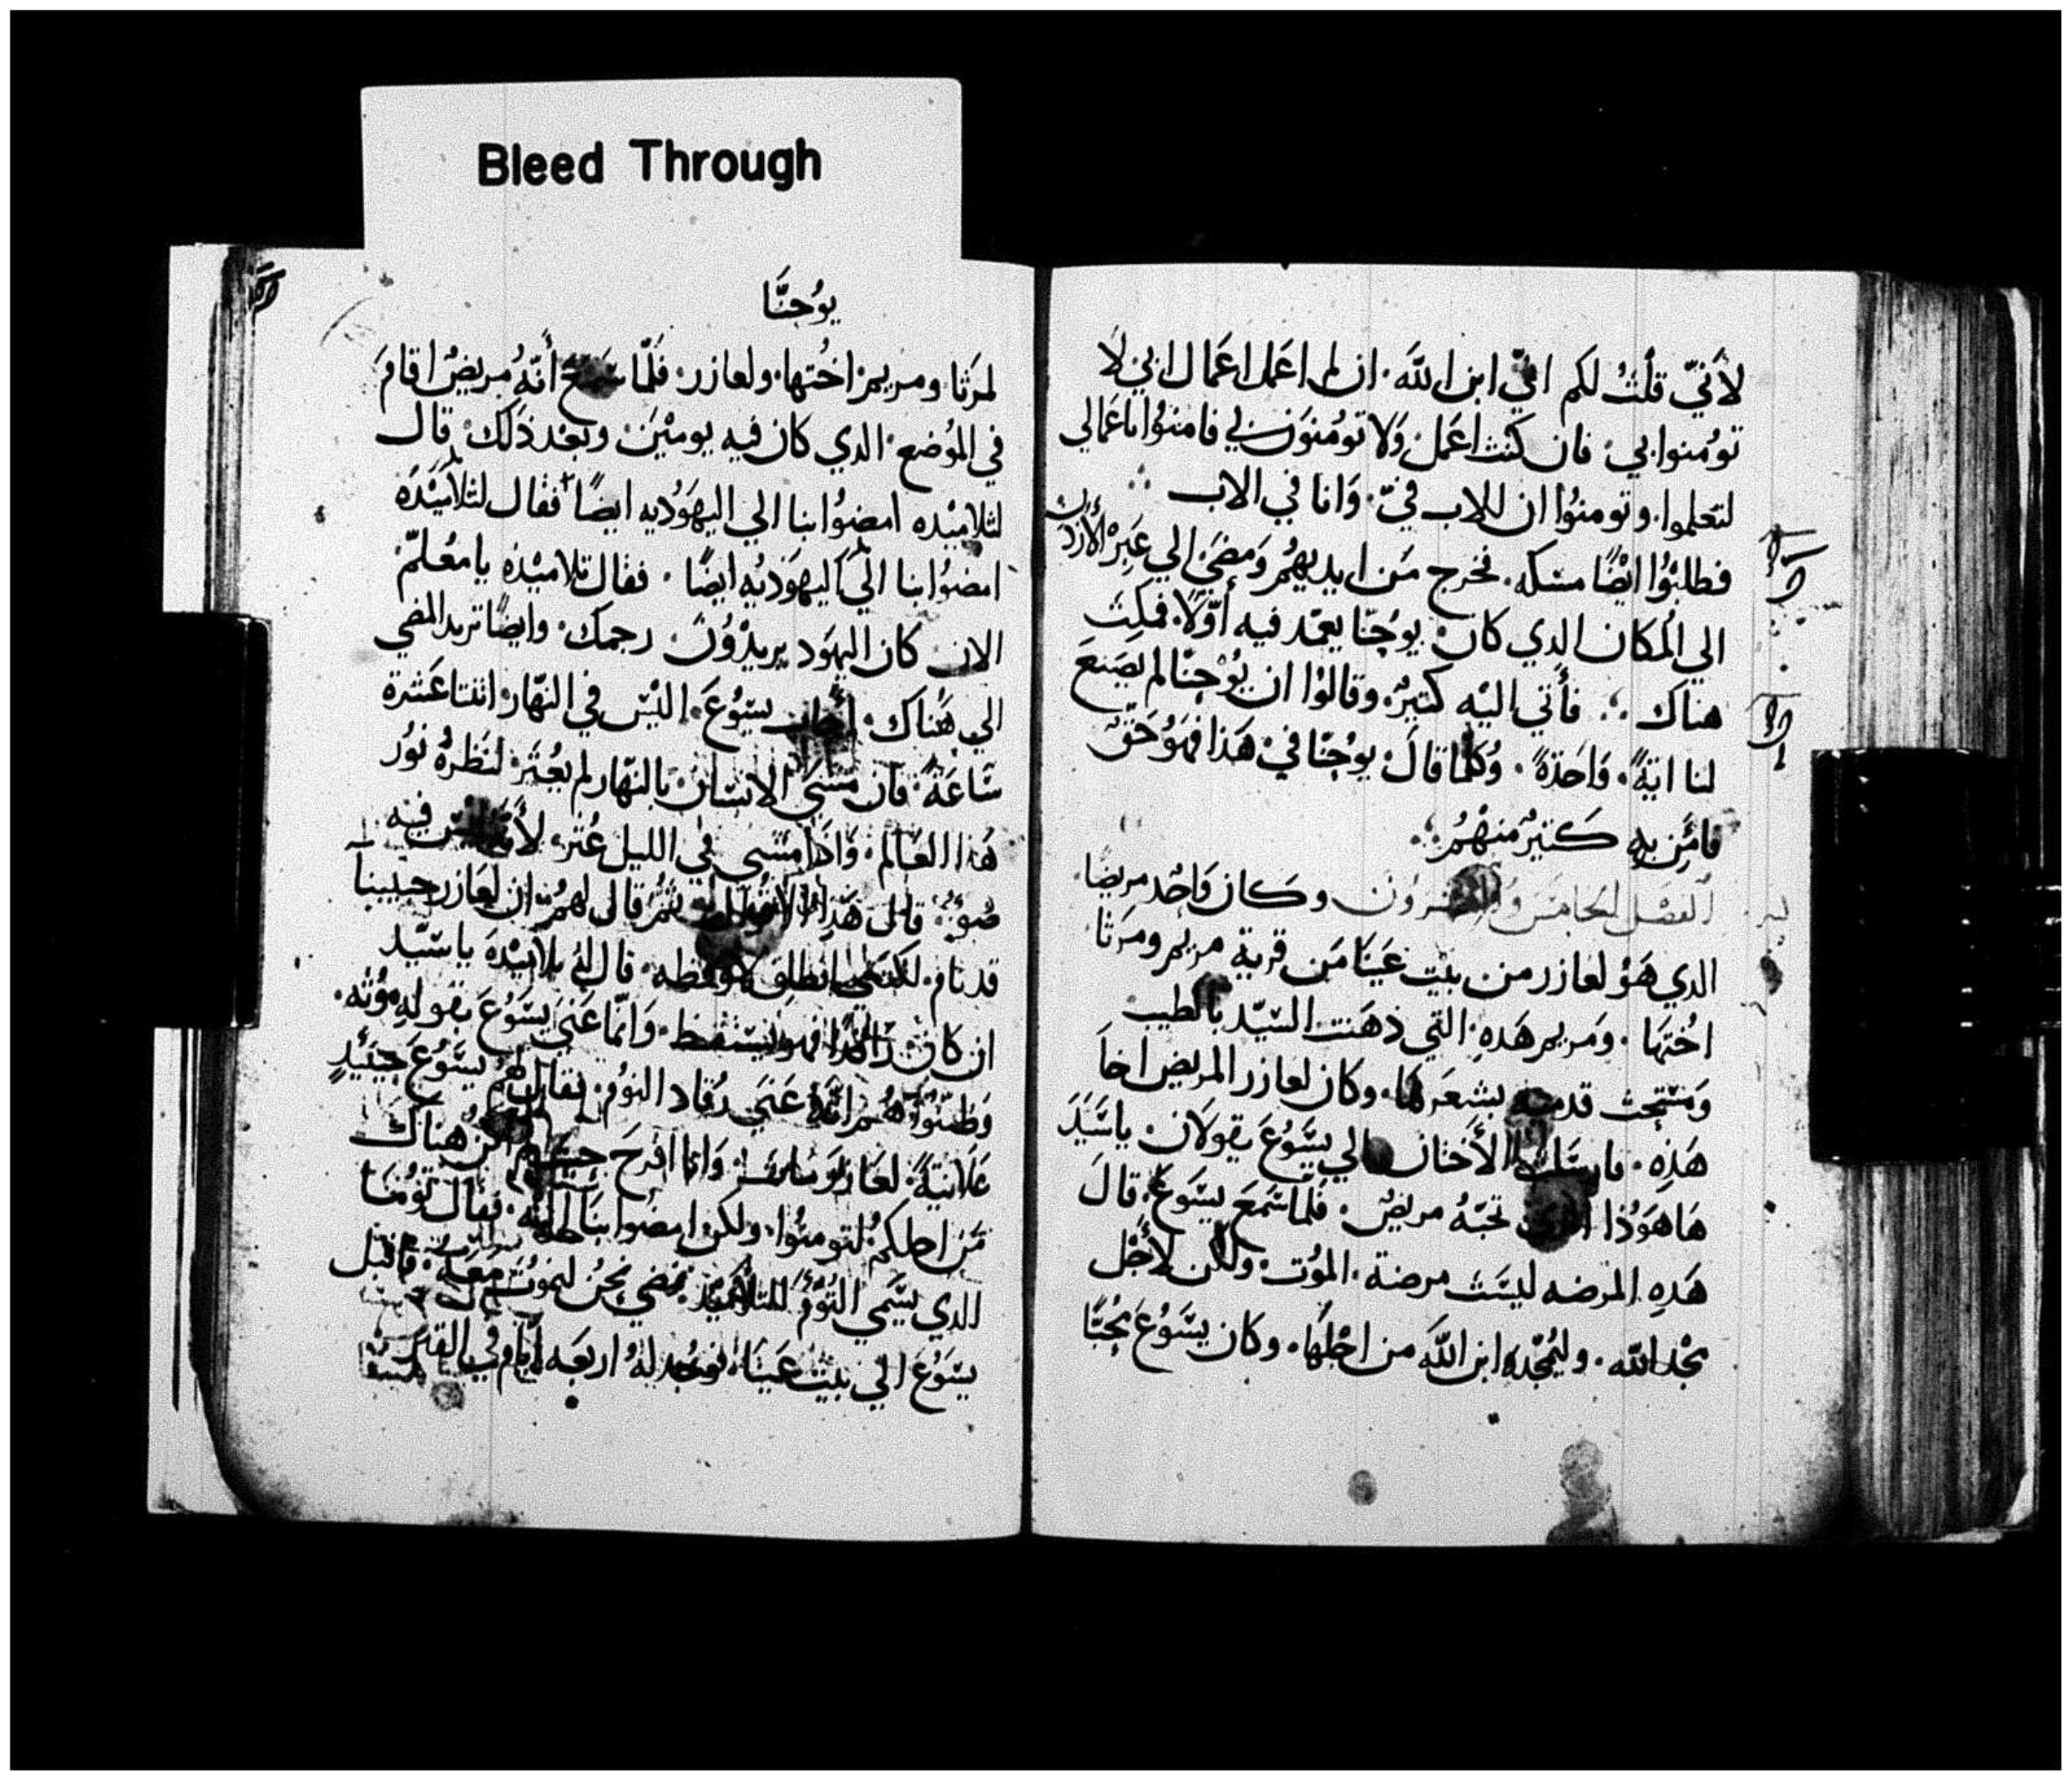 Bleed Through
لأَنّي قلتُ لكم انّي ابن اللّه. ان لم اعمل اعمال ابي لا
تومُنوا بي. فان كنت اعمل ولا تومُنون بي فامنوا باعمالي
لتعلموا. وتومنوُا ان للاب فيّ. وانا في الاب
فطلبوُا ايضًا مسكه. فخرج من ايديهُم ومضي الي عبر الأردن
الي المكان الدي كان يوحنّا يعمد فيه أوّلاً. فمكث
هناك فأتي اليه كتير. وقالوُا ان يوُحنّا لم يصنع
لنا ايةً. واحدةً. وكلما قال يوُحنّا في هذا فهوُ حق
فامن به كتير منهُم.
الفصل الخامس والعشرون وكان واحد مريضا
الدي هوُ لعازر من بيت عينا من قرية مريم ومرتا
اختها. ومريم هده التي دهنت السيّد بالطيب
ومسحت قدميه بشعرها. وكان لعازر المريض اخا
هذه. الأختان الي يسوُع يقولان ياسيد
هاهوُدا تحبّهُ مريض. فلما سمع يسوع. قال
هده المرضه ليست مرضة الموُت. ولكن لأجل
مجد اللّه. وليُمجّد ابن اللّه من اجلها. وكان يسوُع محُبّا
يوُحنّا
لمرتا ومريم اختها. ولعازر. فلمّا سمع أنّهُ مريض اقام
في الموُضع الدي كان فيه يومين وبعد ذلك قال
لتلاميده امضوُا بنا الي اليهوُديه ايضًا فقال لتلاميده
امضوُا بنا الي اليهوديه ايضًا. فقال تلاميذه يامعُلمّ
الان كان اليهود يريدوُن رجمك. وايضًا تريد المضي
الي هناك. أجاب يسوُع. اليس في النهّار اتنتا عشرة
ساعة. فان مشي الانسان بالنهّار لم يعُتر. لنظره نوُر
هُذا العالم. واذا مشي في الليل عُتر. لأنه ليس فيه
ضوُ. قال هذا ثمُ قال لهمُ ان لعازر حبيبنا
قد نام. لكني انطلق لاوقظه. قال لهُ تلاميده ياسيّد
ان كان راقدًا فهو يستيقظ. وانمّا عني يسوُع بقوله موُته.
وظنوُا همُ انهُ عني رقاد النوُم. فقال لهم يسوُع حينيدٍ
علانيةً. لعازر مات. وانا افرح هناك
من اجلكمُ لتومنوُا. ولكن امضوا بنا اليه. فقال توُما
الدي يسمّي التوُم للتلاميد. نمضي نحنُ لنموُت معه. فاقبل
يسوُع الي بيت عينا. فوجد لهُ اربعه ايام في القبر